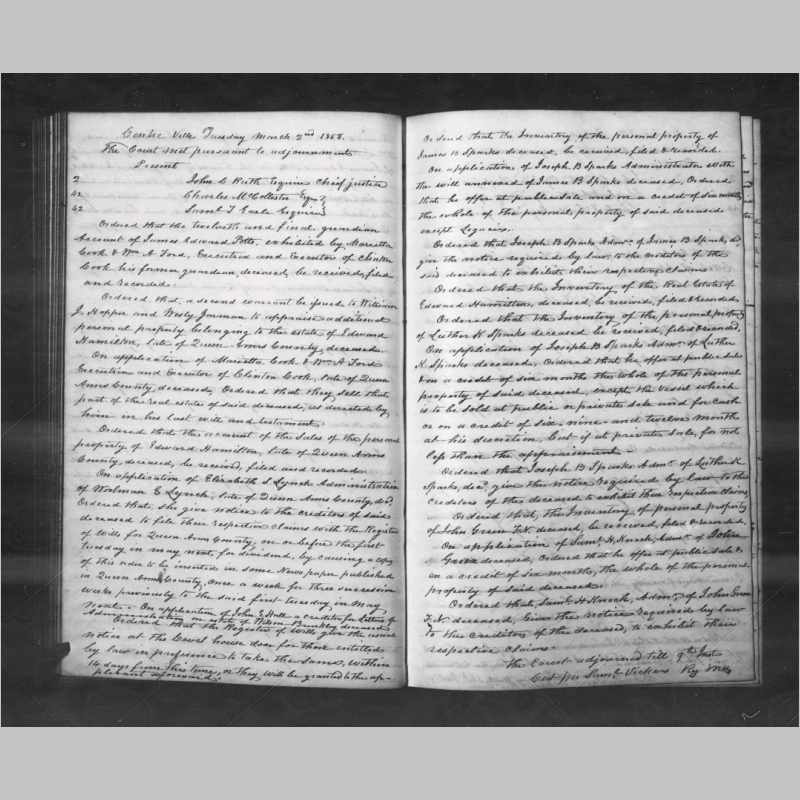 Centre Ville Tuesday March 2nd 1858.
The Court met pursuant to adjournment
Present
2 John C Ruth Esquire Chief justice
42 Charles McCollister Esqr }
42 Samuel T Earle Esquire }
Ordered that the twelveth and final guardian
Account of James Edward Potts, exhibited by Marietta
Cook & Wm A Ford, Executrix and Executor of Clinton
Cook his former guardian, deceased, be received, filed
and recorded.
Ordered that a second warrant be issued to William
J. Hopper and Westly Jarman to appraise additional
personal property belonging to the estate of Edward
Hamilton, late of Queen Anns County, deceased.
On application of Marietta Cook & Wm A Ford
Executrix and Executor of Clinton Cook, late of Queen
Anns County, deceased, Ordered that they sell that
part of the real estate of said deceased, as directed by
him in his last will and testament.
Ordered that the account of the Sales of the personal
property of Edward Hamilton, late of Queen Anns
County, deceased, be received, filed and recorded.
On application of Elizabeth S Lynch Administratrix
of Workman E Lynch, late of Queen Anns County, decd
Ordered that, she give notice to the creditors of said
deceased to file their respective claims with the Register
of Wills for Queen Anns County, on or before the first
tuesday in may next for dividend, by causing a copy
of this order to be inserted in some News paper published
in Queen Anns County, once a week for three successive
weeks previously to the said first tuesday in May
Next. On application of John E Hall a creditor for Letters of
Administration on estate of Wilson Brinkley deceased
Ordered that the Register of Wills give the usual
notice at the Court house door for those entitled
by law in preference to take the same, within
14 days from this time, or they will be granted to the ap-
plicant aforesaid.
Ordered that the Inventory of the personal property of
James B Sparks deceased, be received, filed & recorded.
On application of Joseph B Sparks Administrator with
the will annexed of James B Sparks deceased, Ordered
that he offer at public sale and on a credit of six months
the whole of the personal property of said deceased
except Legacies.
Ordered that Joseph B Sparks Admr. of James B Sparks, decd
give the notice required by law, to the creditors of the
said deceased to exhibit their respective claims.
Ordered that the Inventory of the Real Estate of
Edward Hamilton, deceased, be received, filed & recorded.
Ordered that the Inventory of the personal property
of Luther K Sparks deceased be received, filed & recorded.
On application of Joseph B Sparks Admr. of Luther
K Sparks deceased, Ordered that he offer at public sale
& on a credit of six months the whole of the personal
property of said deceased, except the vessel which
is to be sold at public or private sale and for cash
or on a credit of six nine and twelve months
at his discretion, but if at private sale, for not
less than the appraisement.
Ordered that Joseph B Sparks Admr. of Luther K
Sparks, decd, give the notice required by law to the
creditors of this deceased to exhibit their respective claims,
Ordered that, the Inventory of personal property
of John Green F.N. deceased, be received, filed & recorded.
On application of Saml. H. Admr. of John
Green deceased, Ordered that he offer at public sale &
on a credit of six months, the whole of the personal
property of said deceased.
Ordered that, Saml H Admr. of John Green
F.N. deceased, Give the notice required by law
to the creditors of the deceased, to exhibit their
respective claims.
The Court adjourned till 9th Inst.
Test per Saml. Vickers Reg Wills